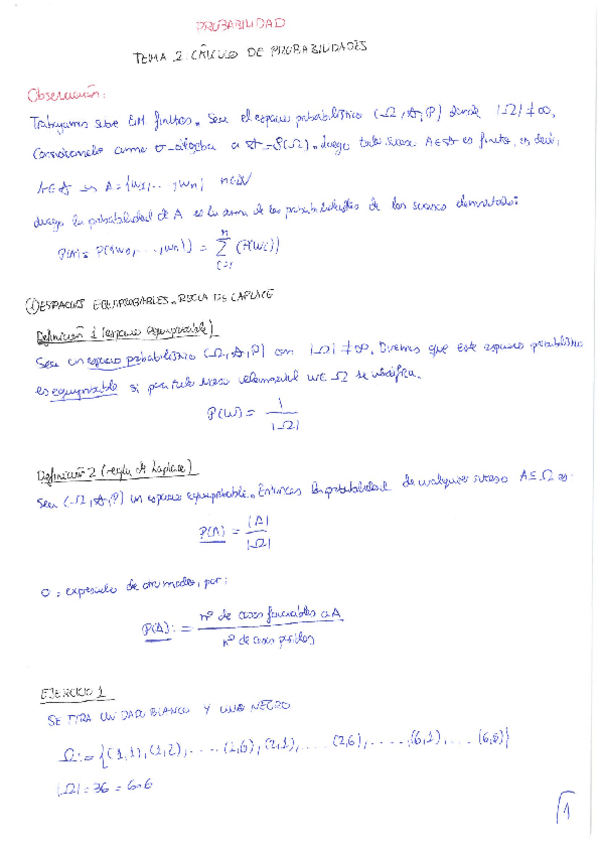 PROBABILIDAD
TEMA 2. CÁLCULO DE PROBABILIDADES
Observación:
Trabajamos sobre EM finitos. Sea el espacio probabilístico (Ω, A, P) donde |Ω| ≠ ∞,
como σ-álgebra a A = P(Ω). Luego todo suceso A∈A es finito, es decir,
A∈A ⇒ A = {w₁, ..., wₙ} n∈N
Luego la probabilidad de A es la suma de las probabilidades de los sucesos elementales:
P(A) = P({w₁, ..., wₙ}) = Σ_{i=1}^{n} (P(wᵢ))
① ESPACIOS EQUIPROBABLES. REGLA DE LAPLACE
Definición 1 (espacio equiprobable)
Sea un espacio probabilístico (Ω, A, P) con |Ω| ≠ ∞. Diremos que este espacio probabilístico
es equiprobable si para todo suceso elemental w∈Ω se verifica.
P(w) = 1 / |Ω|
Definición 2 (regla de Laplace)
Sea (Ω, A, P) un espacio equiprobable. Entonces la probabilidad de cualquier suceso A⊆Ω es:
P(A) = |A| / |Ω|
O, expresado de otro modo, por:
P(A) := nº de casos favorables a A / nº de casos posibles
EJERCICIO 1
SE TIRA UN DADO BLANCO Y UNO NEGRO
Ω := {(1,1), (1,2), .... (1,6), (2,1), .... (2,6), ...., (6,1), .... (6,6)}
|Ω| = 36 = 6·6
1